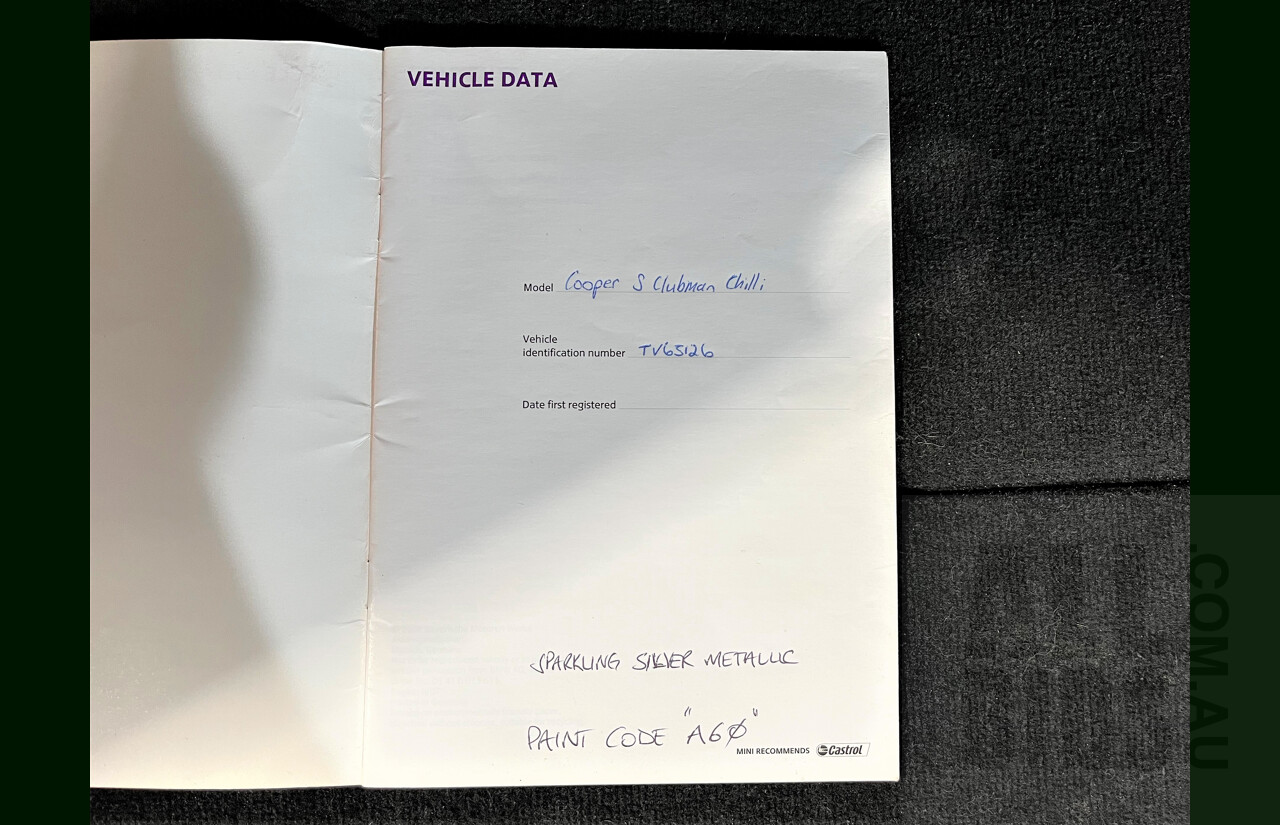 VEHICLE DATA
Model Cooper S Clubman Chilli
Vehicle
identification number TV65126
Date first registered
SPARKLING SILVER METALLIC
PAINT CODE "A6Ø"
MINI RECOMMENDS Castrol
.COM.AU